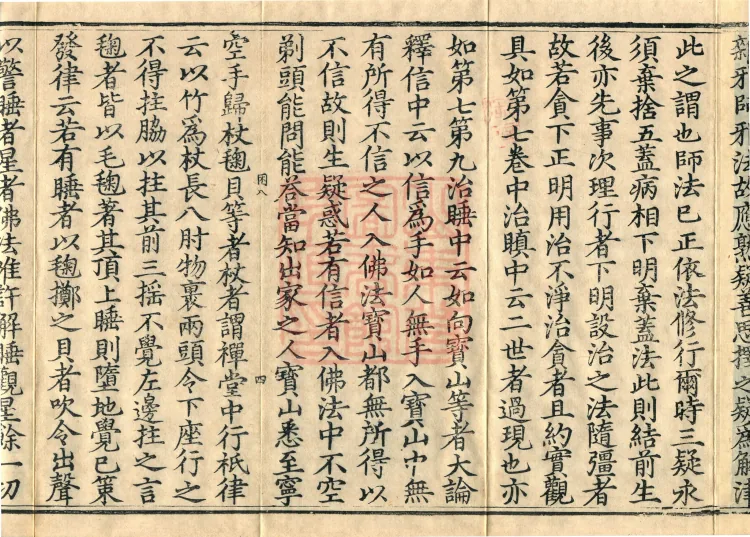 邪師邪法故應熟疑善思擇之疑為解津
此之謂也師法已正依法修行爾時三疑永
須棄捨五蓋病相下明棄蓋法此則結前生
後亦先事次理行者下明設治之法隨彊者
故若貪下正明用治不淨治貪者且約實觀
具如第七卷中治瞋中云二世者過現也亦
如第七第九治睡中云如向寶山等者大論
釋信中云以信為手如人無手入寶山中無
有所得不信之人入佛法寶山都無所得以
不信故則生疑惑若有信者入佛法中不空
剃頭能問能荅當知出家之人寶山悉至寧
困八 四
空手歸杖毱貝等者杖者謂禪堂中行祇律
云以竹為杖長八肘物裹兩頭令下座行之
不得拄脇以拄其前三搖不覺左邊拄之言
毱者皆以毛毱著其頂上睡則墮地覺已策
發律云若有睡者以毱擲之貝者吹令出聲
以警睡者星者佛法准許解睡觀星餘一切